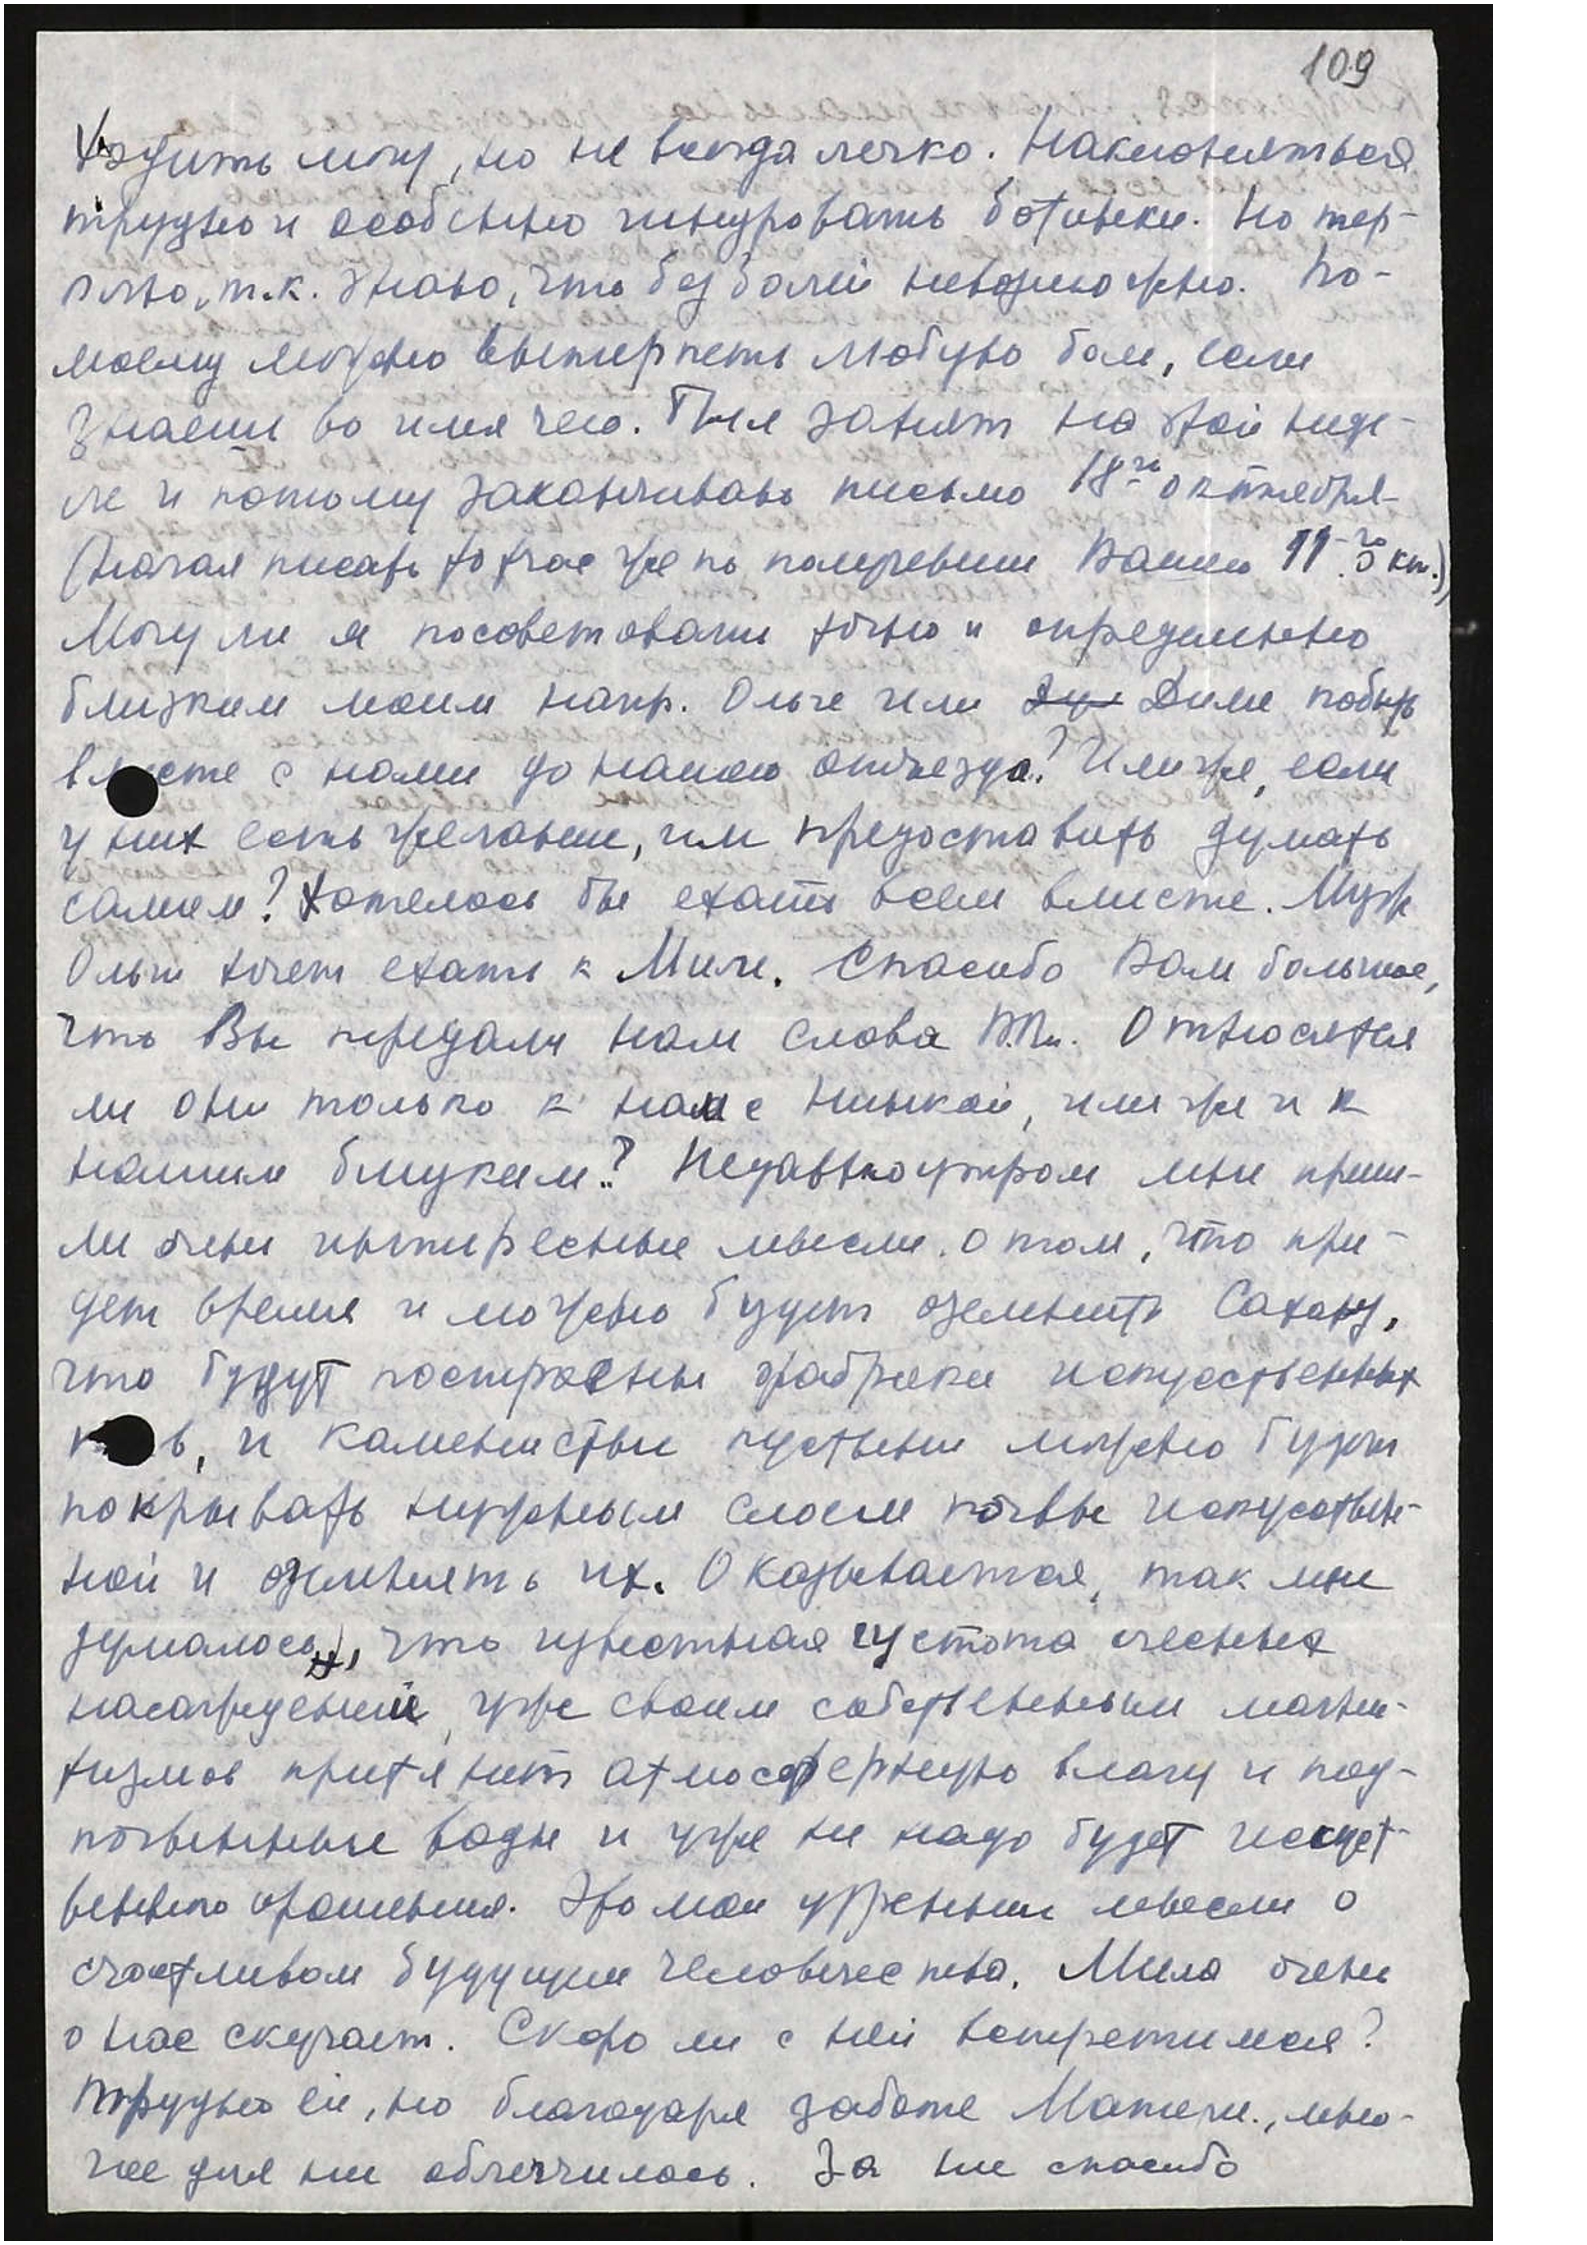 109
Ходить могу, но не всегда легко. Наклоняться
трудно и особенно шнуровать ботинки. Но тер-
плю, т.к. знаю, что без болей невозможно. По-
моему можно вытерпеть любую боль, если
знаешь во имя чего. Был занят на этой неде-
ле и потому заканчиваю письмо 18го октября
(начал писать тотчас же по получении Вашего 11го окт.)
Могу ли я посоветовать точно и определенно
близким моим напр. Ольге или Диме побыть
вместе с нами до нашего отъезда? Или же, если
у них есть желание, им предоставить думать
самим? Хотелось бы ехать всем вместе. Муж
Ольги хочет ехать к Миле. Спасибо Вам большое,
что Вы передали нам слова В.Вл. Относятся
ли они только к нам с Нинкой, или же и к
нашим близким? Недавно утром мне приш-
ли очень интересные мысли о том, что при-
дет время и можно будет озеленить Сахару,
что будут построены фабрики искусственных
почв, и каменистые пустыни можно будет
покрывать нужным слоем почвы искусствен-
ной и озеленять их. Оказывается, так мне
думалось, что известная густота лесных
насаждений, уже своим собственным магне-
тизмом притянет атмосферную влагу и под-
почвенные воды и уже не надо будет искусст-
венного орошения. Это мои утренние мысли о
счастливом будущем человечества. Мила очень
о нас скучает. Скоро ли с ней встретимся?
Трудно ей, но благодаря заботе Матери, мно-
гое для нее облегчилось. За нее спасибо